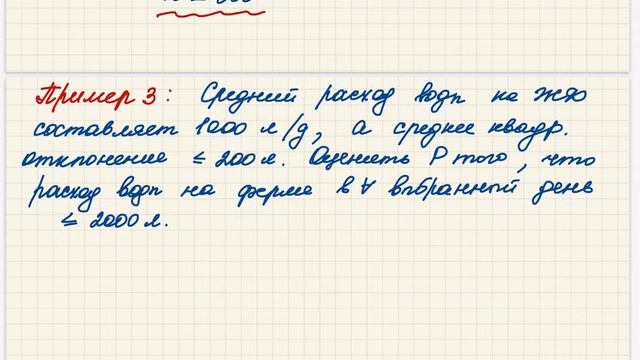 Пример 3: Средний расход воды на ЖФ
составляет 1000 л/д, а среднее квадр.
отклонение ≤ 200 л. Оценить P того, что
расход воды на ферме в ∀ выбранный день
≤ 2000 л.